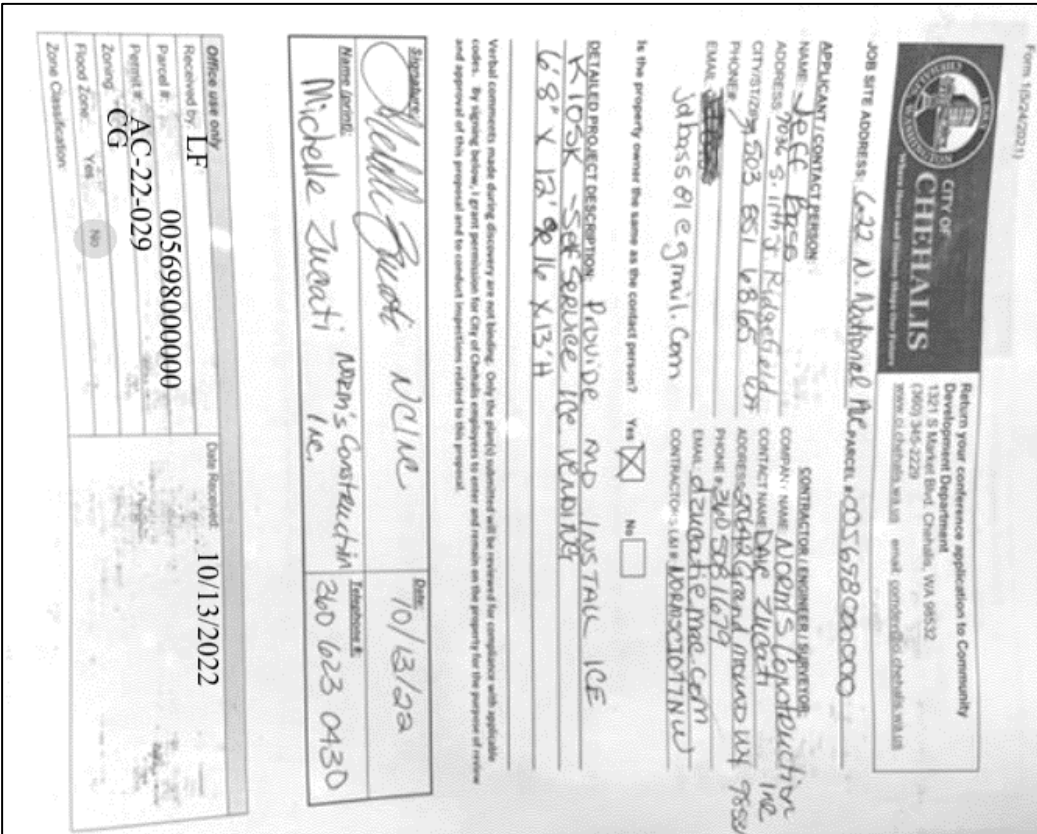 Form 1(5/24/2021)
CITY OF
CHEHALIS
Return your conference application to Community
Development Department
1321 S Market Blvd. Chehalis, WA 98532
(360) 345-2229
www.ci.chehalis.wa.us email:
JOB SITE ADDRESS: 622 N. National Ave PARCEL # 005698000000
APPLICANT / CONTACT PERSON:
NAME: Jeff Bass
ADDRESS:
CITY/ST/ZIP: Ridgefield, WA
PHONE#: 503 851 6865
EMAIL:
jdbass01@gmail.com
CONTRACTOR / ENGINEER / SURVEYOR:
COMPANY NAME: NORM'S Construction Inc
CONTACT NAME: DAVE Zucati
ADDRESS: Grand mound WA
PHONE #: 360 508 1679
EMAIL: dzucati@me.com
CONTRACTOR'S L&I #:
Is the property owner the same as the contact person? Yes No
DETAILED PROJECT DESCRIPTION: Provide AND INSTALL ICE
KIOSK - Self Service ice vending
6'8" X 12' X 13'H
Verbal comments made during discovery are not binding. Only the plan(s) submitted will be reviewed for compliance with applicable
codes. By signing below, I grant permission for City of Chehalis employees to enter and remain on the property for the purpose of review
and approval of this proposal and to conduct inspections related to this proposal.
Signature: NCINC
Date: 10/13/22
Name (print): Michelle Zucati Norm's Construction Inc.
Telephone #: 360 623 0430
Office use only
Received by: LF
Date Received: 10/13/2022
Parcel #: 005698000000
Permit #: AC-22-029
Zoning: CG
Flood Zone: Yes No
Zone Classification: